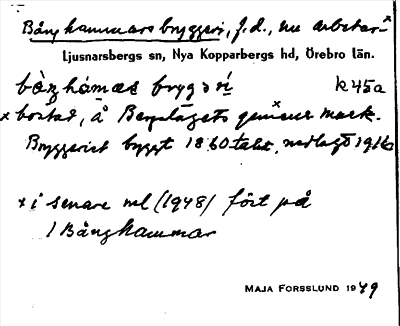 Bånghammars bryggeri, f.d., nu arbetar-x
Ljusnarsbergs sn, Nya Kopparbergs hd, Örebro län.
bòŋhámas brygəri k45a
x bostad, å Bergslagets gemens. mark.
Bryggeriet byggt 1860talet, nedlagt 1916
x i senare ml (1948) fört på
1 Bånghammar
MAJA FORSSLUND 1949